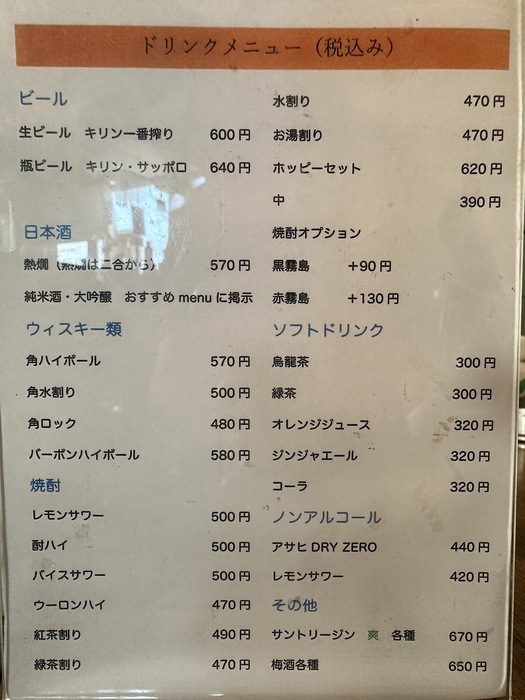 ドリンクメニュー（税込み）
ビール
生ビール　キリン一番搾り　600 円
瓶ビール　キリン・サッポロ　640 円
日本酒
熱燗（熱燗は二合から）　570 円
純米酒・大吟醸　おすすめ menu に掲示
ウィスキー類
角ハイボール　570 円
角水割り　500 円
角ロック　480 円
バーボンハイボール　580 円
焼酎
レモンサワー　500 円
酎ハイ　500 円
バイスサワー　500 円
ウーロンハイ　470 円
紅茶割り　490 円
緑茶割り　470 円
水割り　470 円
お湯割り　470 円
ホッピーセット　620 円
中　390 円
焼酎オプション
黒霧島　＋90 円
赤霧島　＋130 円
ソフトドリンク
烏龍茶　300 円
緑茶　300 円
オレンジジュース　320 円
ジンジャエール　320 円
コーラ　320 円
ノンアルコール
アサヒ DRY ZERO　440 円
レモンサワー　420 円
その他
サントリージン　爽　各種　670 円
梅酒各種　650 円